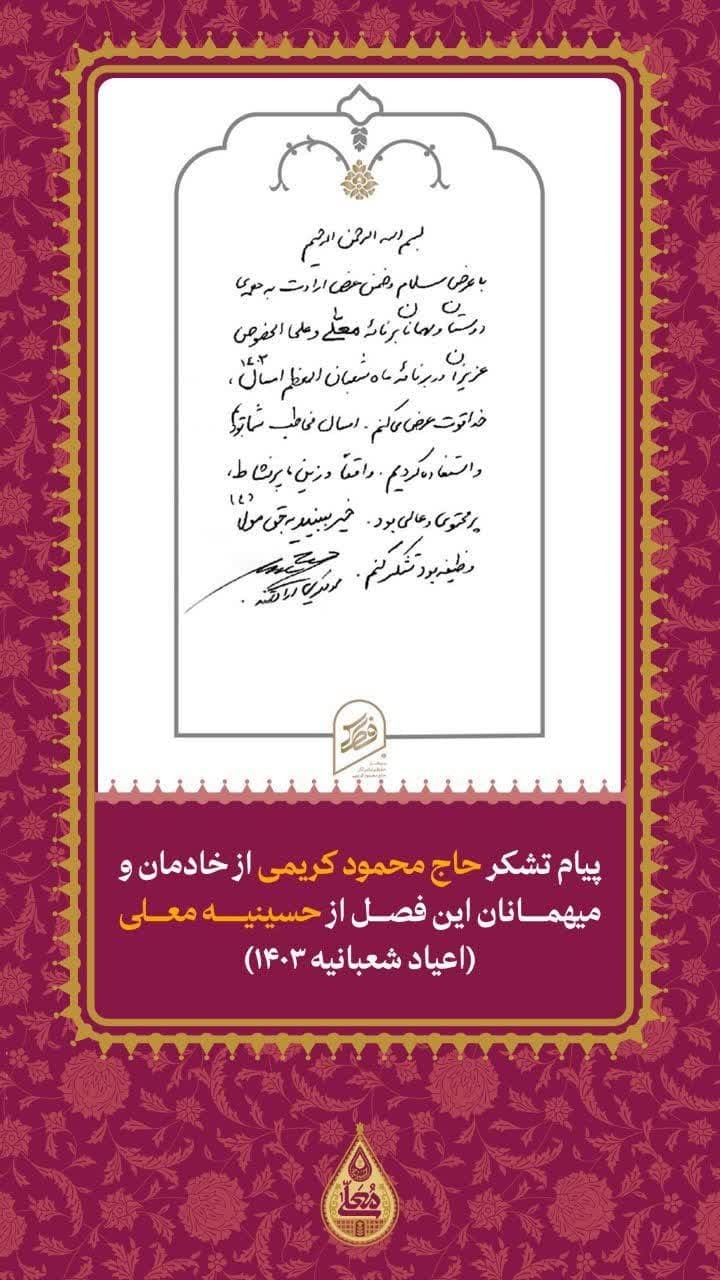 بسم الله الرحمن الرحیم
با عرض سلام و ضمن عرض ارادت به همهٔ
دوستان و مهمانان برنامهٔ معلّی و علی الخصوص
عزیزان در برنامهٔ ماه شعبان المعظم امسال ۱۴۰۳،
خدا قوت عرض می‌کنم. امسال مخاطب شما بودم
و استفاده کردیم. واقعاً وزین، پرنشاط،
پر محتوی و عالی بود. خیر ببینید به حق مولا (ع)
وظیفه بود تشکر کنم.
پیام تشکر حاج محمود کریمی از خادمان و
میهمانان این فصل از حسینیه معلی
(اعیاد شعبانیه ۱۴۰۳)
مُعَلّی